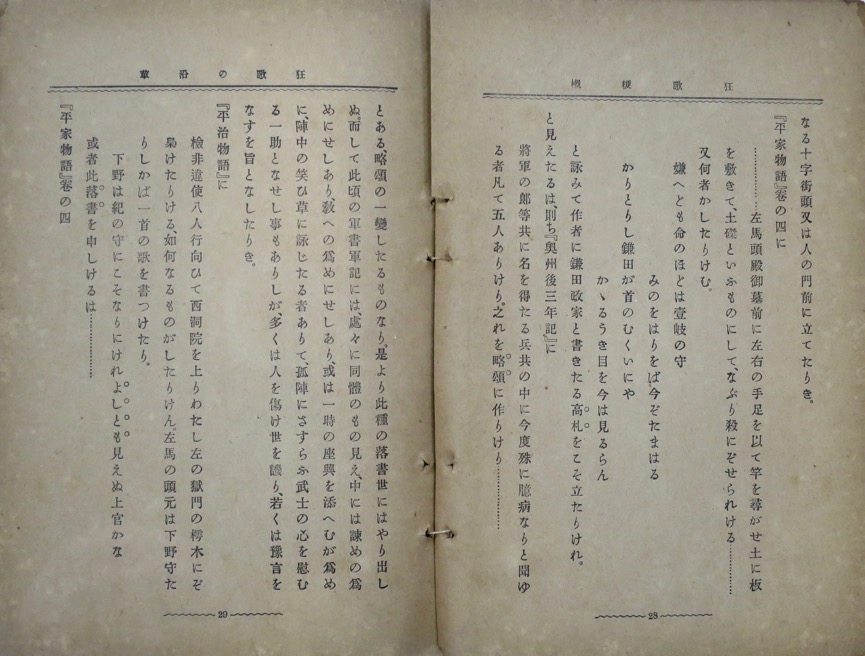 狂歌梗概
なる十字街頭又は人の門前に立てたりき。
『平家物語』卷の四に
……………左馬頭殿御墓前に左右の手足を以て竿を尋がせ土に板
を敷きて、土磔といふものにして、なぶり殺にぞせられける…………
又何者かしたりけむ。
嫌へども命のほどは壹岐の守
みのをはりをば今ぞたまはる
かりとりし鎌田が首のむくいにや
かゝるうき目を今は見るらん
と詠みて作者に鎌田政家と書きたる高札をこそ立たりけれ。
と見えたるは、則ち『奥州後三年記』に
將軍の郞等共に名を得たる兵共の中に今度殊に臆病なりと聞ゆ
る者凡て五人ありけり。之れを略頌に作りけり……………
28
狂歌の沿革
とある、略頌の一變したるものなり、是より此種の落書世にはやり出し
ぬ。而して此頃の軍書軍記には、處々に同體のもの見え、中には諫めの爲
めにせしあり、敎への爲めにせしあり、或は一時の座興を添へむが爲め
に、陣中の笑ひ草に詠じたる者ありて、孤陣にさすらふ武士の心を慰む
る一助となせし事もありしが、多くは人を傷け世を譏り、若くは豫言を
なすを旨となしたりき。
『平治物語』に
檢非違使八人行向ひて西洞院を上りわたし左の獄門の樗木にぞ
梟けたりける、如何なるものがしたりけん。左馬の頭元は下野守た
りしかば一首の歌を書つけたり。
下野は紀の守にこそなりにけれよしとも見えぬ上官かな
『平家物語』卷の四
或者此落書を申しけるは……………
29